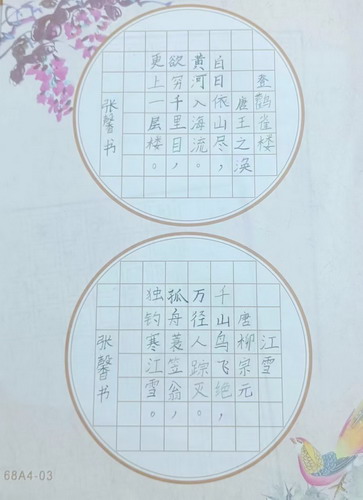 登鹳雀楼
唐王之涣
白日依山尽，
黄河入海流。
欲穷千里目，
更上一层楼。
张馨书
江雪
唐柳宗元
千山鸟飞绝，
万径人踪灭。
孤舟蓑笠翁，
独钓寒江雪。
张馨书
68A4-03